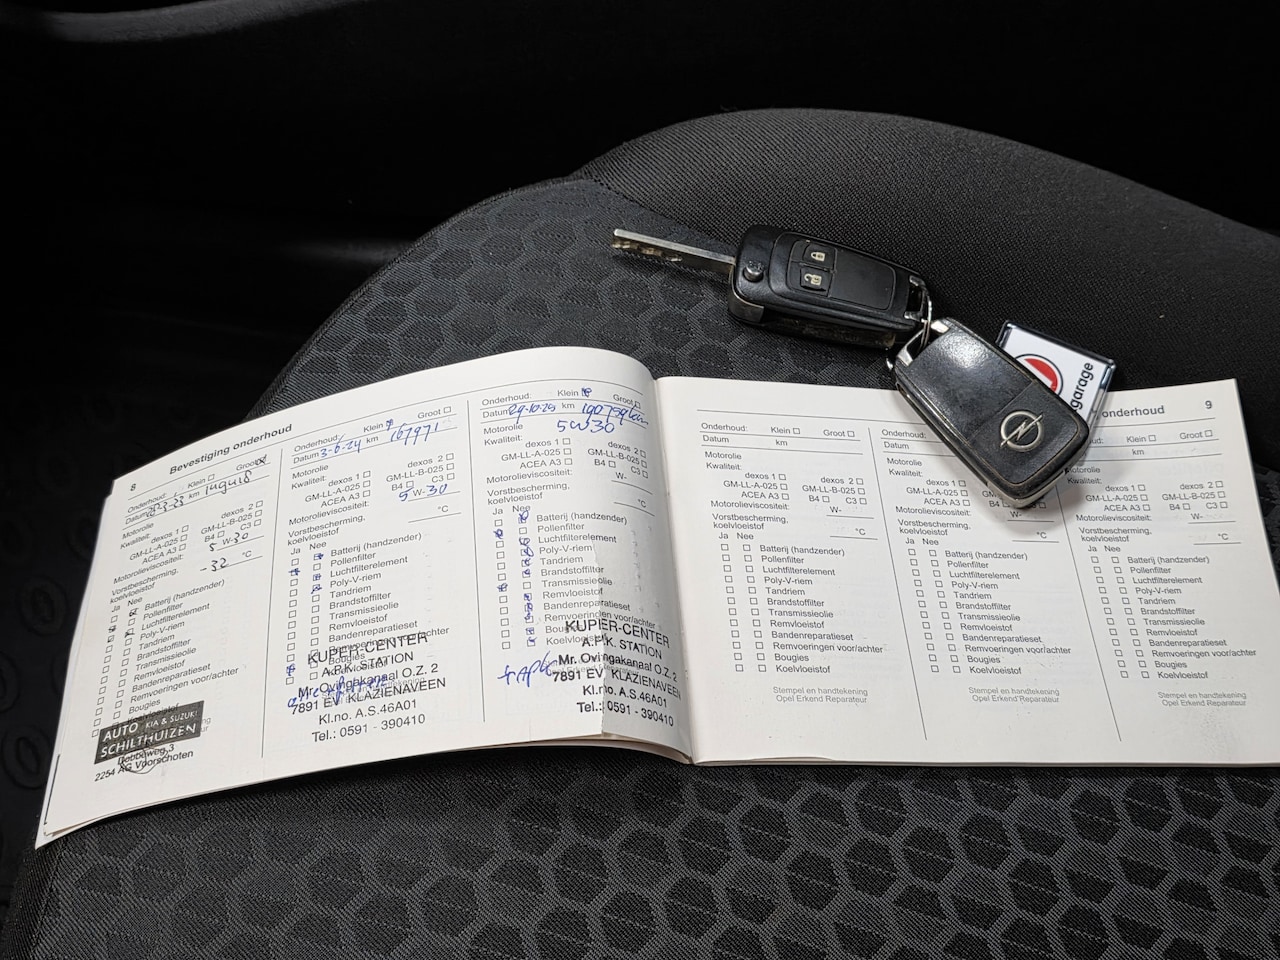 8
Bevestiging onderhoud
Onderhoud: Klein Groot
Datum km
Motorolie
Kwaliteit:
dexos 1 dexos 2
GM-LL-A-025 GM-LL-B-025
ACEA A3 B4 C3
Motorolieviscositeit: 5 W-30
Vorstbescherming, koelvloeistof -32 °C
Ja Nee
Batterij (handzender)
Pollenfilter
Luchtfilterelement
Poly-V-riem
Tandriem
Brandstoffilter
Transmissieolie
Remvloeistof
Bandenreparatieset
Remvoeringen voor/achter
Bougies
Koelvloeistof
AUTO KIA & SUZUKI
SCHILTHUIZEN
Dobbeweg 3
2254 AG Voorschoten
Onderhoud: Klein Groot
Datum 3-6-24 km 167971
Motorolie
Kwaliteit:
dexos 1 dexos 2
GM-LL-A-025 GM-LL-B-025
ACEA A3 B4 C3
Motorolieviscositeit: 5 W-30
Vorstbescherming, koelvloeistof °C
Ja Nee
Batterij (handzender)
Pollenfilter
Luchtfilterelement
Poly-V-riem
Tandriem
Brandstoffilter
Transmissieolie
Remvloeistof
Bandenreparatieset
Remvoeringen voor/achter
Bougies
Koelvloeistof
KUPIER-CENTER
A.P.K. STATION
Mr. Ovingakanaal O.Z. 2
7891 EV KLAZIENAVEEN
Kl.no. A.S.46A01
Tel.: 0591 - 390410
Onderhoud: Klein Groot
Datum 29-10-25 km
Motorolie 5W30
Kwaliteit:
dexos 1 dexos 2
GM-LL-A-025 GM-LL-B-025
ACEA A3 B4 C3
Motorolieviscositeit: W-
Vorstbescherming, koelvloeistof °C
Ja Nee
Batterij (handzender)
Pollenfilter
Luchtfilterelement
Poly-V-riem
Tandriem
Brandstoffilter
Transmissieolie
Remvloeistof
Bandenreparatieset
Remvoeringen voor/achter
Bougies
Koelvloeistof
KUPIER-CENTER
A.P.K. STATION
Mr. Ovingakanaal O.Z. 2
7891 EV KLAZIENAVEEN
Kl.no. A.S.46A01
Tel.: 0591 - 390410
garage
onderhoud 9
Onderhoud: Klein Groot
Datum km
Motorolie
Kwaliteit:
dexos 1 dexos 2
GM-LL-A-025 GM-LL-B-025
ACEA A3 B4 C3
Motorolieviscositeit: W-
Vorstbescherming,
koelvloeistof °C
Ja Nee
Batterij (handzender)
Pollenfilter
Luchtfilterelement
Poly-V-riem
Tandriem
Brandstoffilter
Transmissieolie
Remvloeistof
Bandenreparatieset
Remvoeringen voor/achter
Bougies
Koelvloeistof
Stempel en handtekening
Opel Erkend Reparateur
Onderhoud:
Datum
Motorolie
Kwaliteit:
dexos 1
GM-LL-A-025 GM-LL-B-025
ACEA A3 B4 C3
Motorolieviscositeit: W-
Vorstbescherming,
koelvloeistof °C
Ja Nee
Batterij (handzender)
Pollenfilter
Luchtfilterelement
Poly-V-riem
Tandriem
Brandstoffilter
Transmissieolie
Remvloeistof
Bandenreparatieset
Remvoeringen voor/achter
Bougies
Koelvloeistof
Stempel en handtekening
Opel Erkend Reparateur
Klein Groot
km
dexos 1 dexos 2
GM-LL-A-025 GM-LL-B-025
ACEA A3 B4 C3
Motorolieviscositeit: W-
Vorstbescherming,
koelvloeistof °C
Ja Nee
Batterij (handzender)
Pollenfilter
Luchtfilterelement
Poly-V-riem
Tandriem
Brandstoffilter
Transmissieolie
Remvloeistof
Bandenreparatieset
Remvoeringen voor/achter
Bougies
Koelvloeistof
Stempel en handtekening
Opel Erkend Reparateur